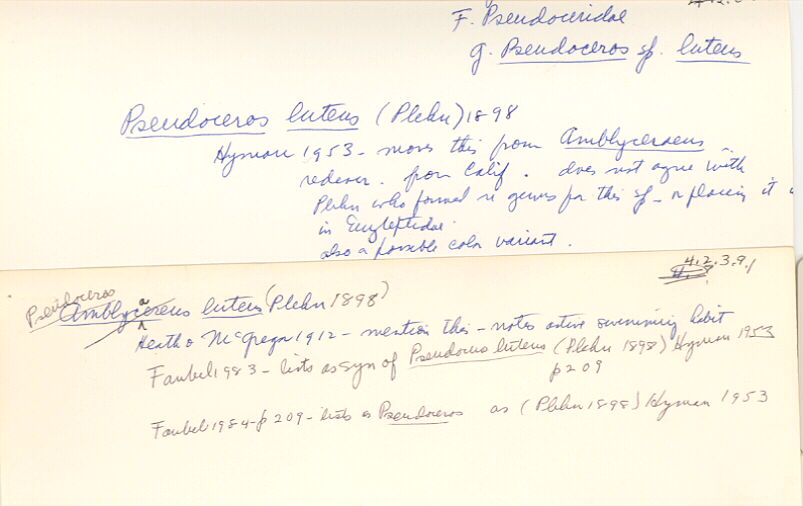 F. Pseudoceridae
g. Pseudoceros sp. luteus
Pseudoceros luteus (Plehn) 1898
Hyman 1953 - moves this from Amblyceraeus
redescr. from Calif. does not agree with
Plehn who formed n genus for this sp - or placing it
in Euryleptidae.
also a possible color variant.
4.2.3.9.1
Pseudoceros
Amblycereus luteus (Plehn 1898)
a
Heath & McGregor 1912 - mention this - notes active swimming habit
Faubel 1983 - lists as syn of Pseudoceros luteus (Plehn 1898) Hyman 1953
p 209
Faubel 1984 - p 209 - lists as Pseudoceros as (Plehn 1898) Hyman 1953